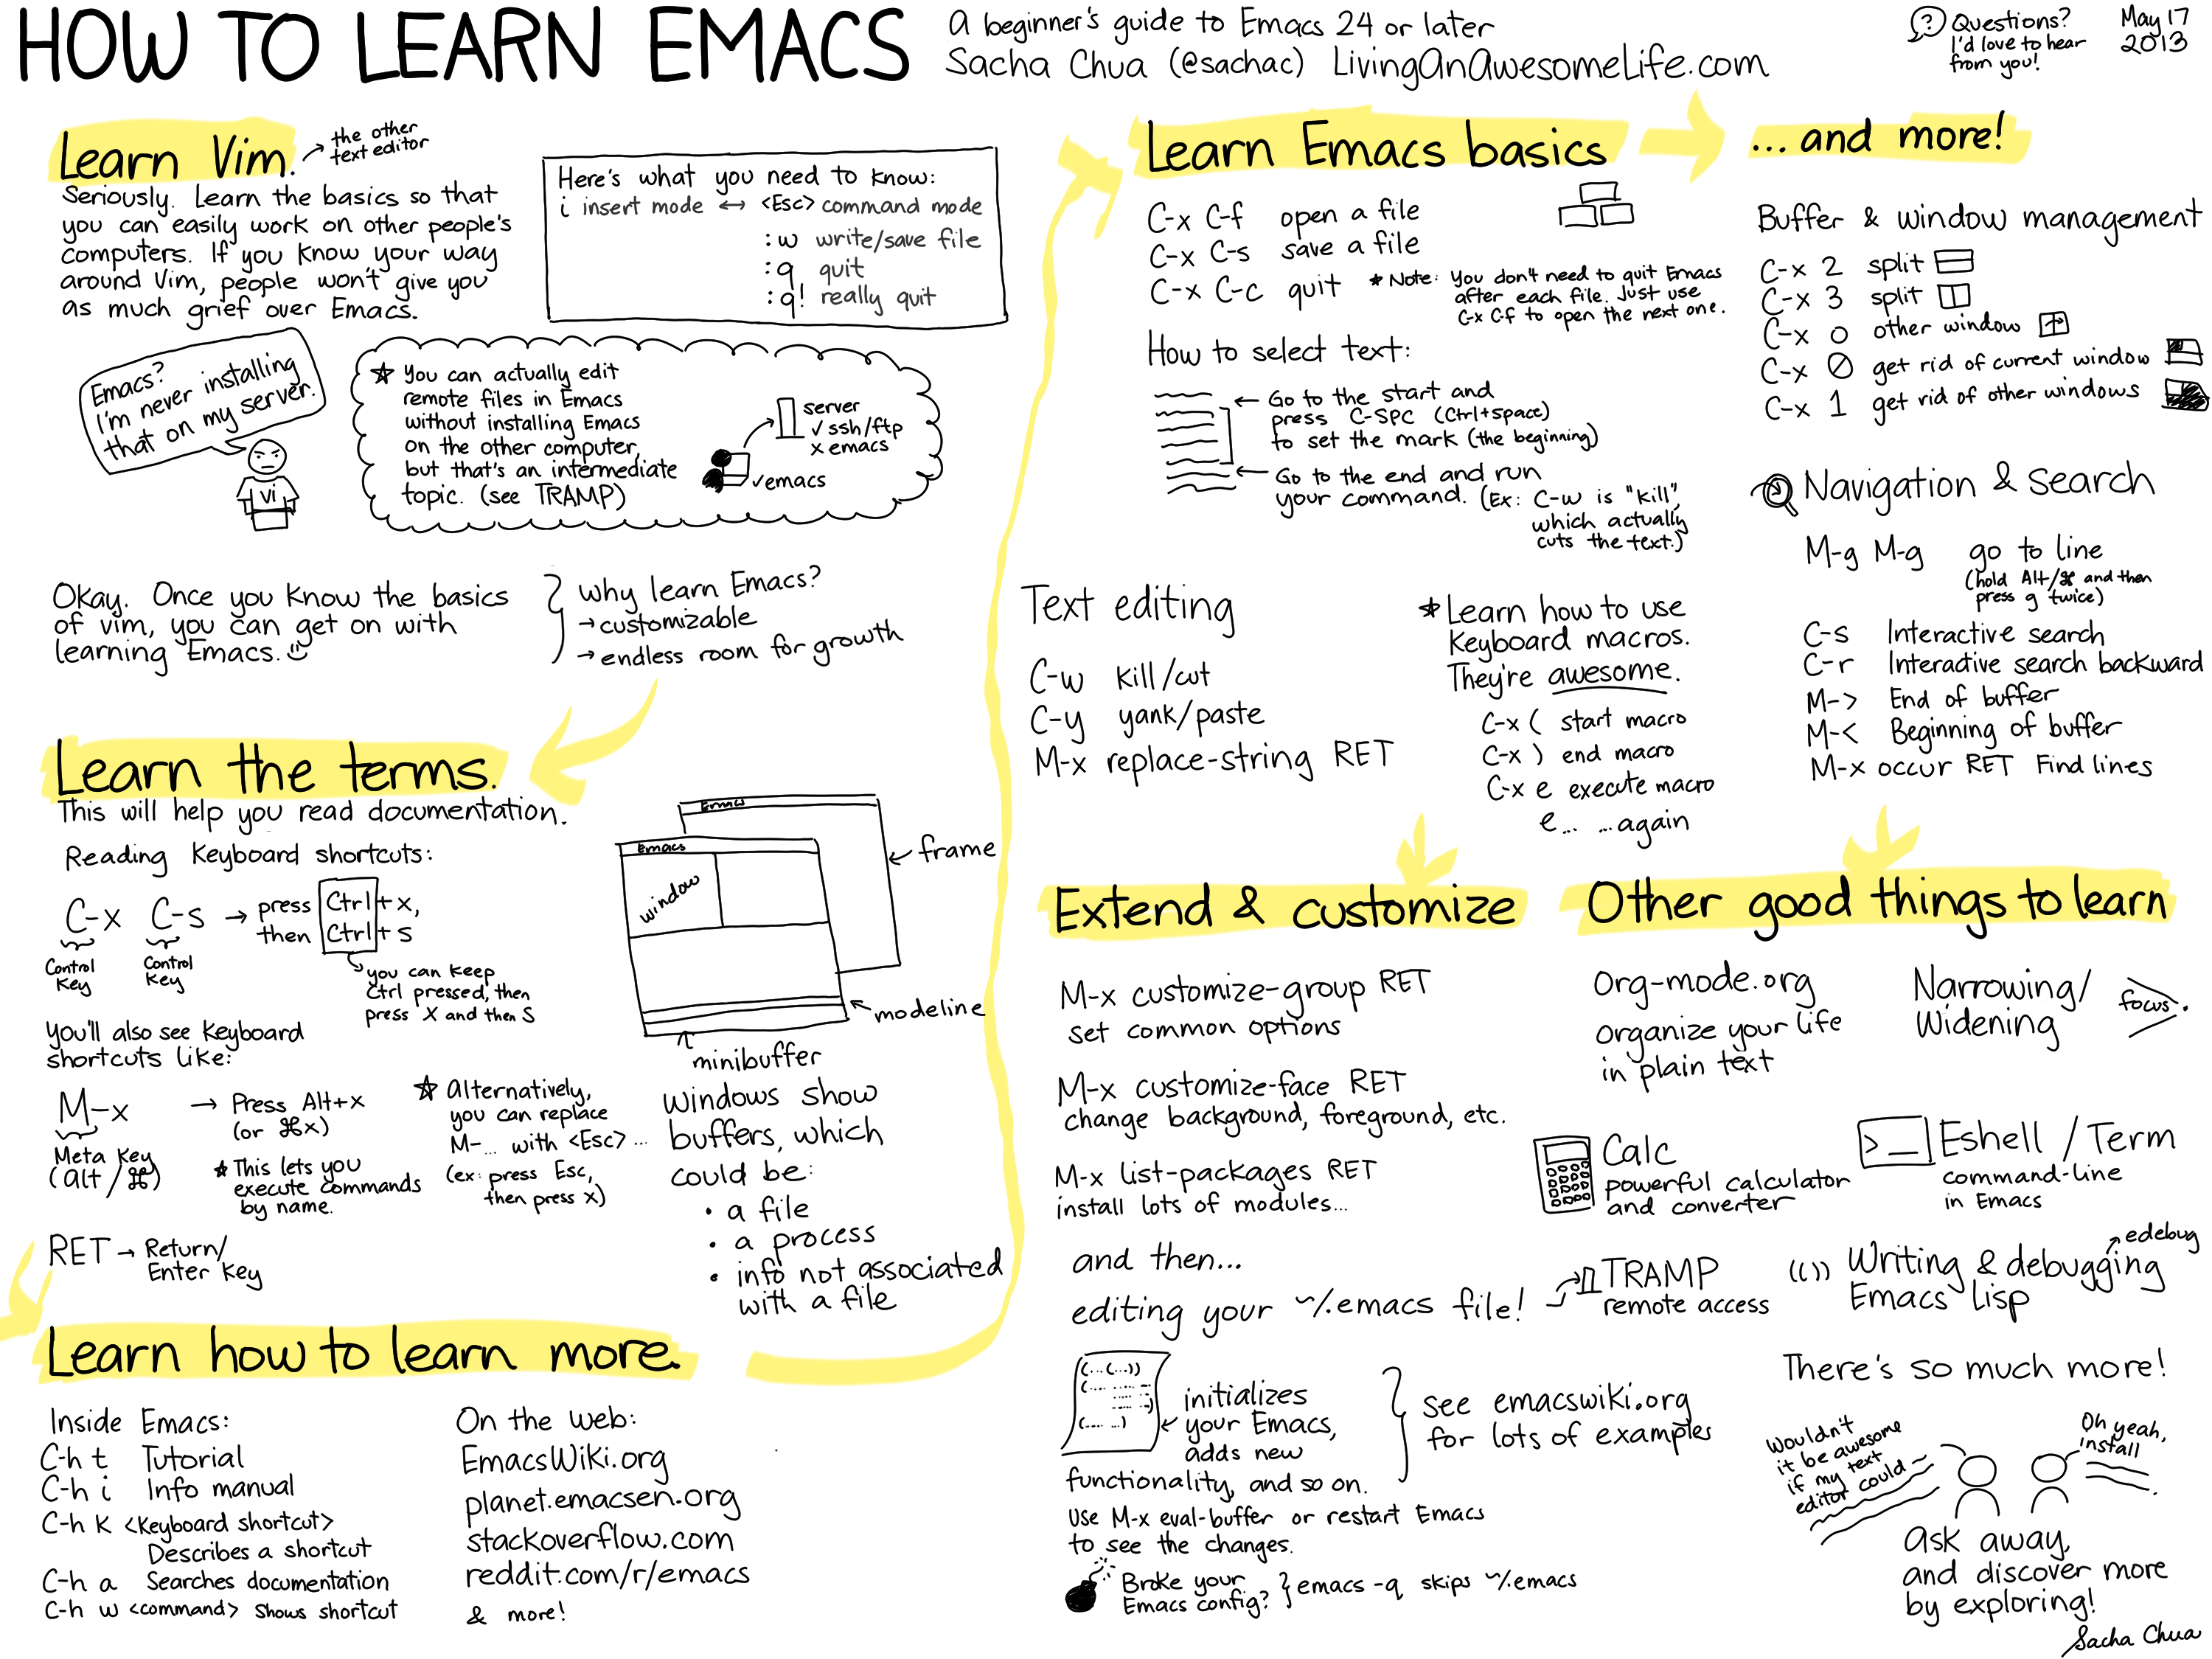 HOW TO LEARN EMACS
A beginner's guide to Emacs 24 or later
Sacha Chua (@sachac) LivingAnAwesomeLife.com
? Questions?
I'd love to hear
from you!
May 17
2013
Learn Vim.
the other
text editor
Seriously. Learn the basics so that
you can easily work on other people's
computers. If you know your way
around Vim, people won't give you
as much grief over Emacs.
Here's what you need to know:
i insert mode ↔ <Esc> command mode
:w write/save file
:q quit
:q! really quit
Emacs?
I'm never installing
that on my server.
vi
★ You can actually edit
remote files in Emacs
without installing Emacs
on the other computer,
but that's an intermediate
topic. (see TRAMP)
server
✓ ssh/ftp
x emacs
✓emacs
Okay. Once you know the basics
of vim, you can get on with
learning Emacs.
why learn Emacs?
→ customizable
→ endless room for growth
Learn the terms.
This will help you read documentation.
Reading keyboard shortcuts:
C-x C-s → press Ctrl + x,
then Ctrl + s
Control
key
Control
key
you can keep
Ctrl pressed, then
press X and then S
You'll also see keyboard
shortcuts like:
M-x → Press Alt+x
(or ⌘x)
Meta key
(alt/⌘)
★ This lets you
execute commands
by name.
★ Alternatively,
you can replace
M-... with <Esc>...
(ex: press Esc,
then press x)
RET → Return/
Enter key
Emacs
Emacs
window
← frame
← modeline
minibuffer
windows show
buffers, which
could be:
• a file
• a process
• info not associated
with a file
Learn how to learn more.
Inside Emacs:
C-h t Tutorial
C-h i Info manual
C-h k <keyboard shortcut>
Describes a shortcut
C-h a Searches documentation
C-h w <command> shows shortcut
On the web:
EmacsWiki.org
planet.emacsen.org
stackoverflow.com
reddit.com/r/emacs
& more!
Learn Emacs basics
C-x C-f open a file
C-x C-s save a file
C-x C-c quit
★ Note: You don't need to quit Emacs
after each file. Just use
C-x C-f to open the next one.
How to select text:
← Go to the start and
press C-SPC (Ctrl+space)
to set the mark (the beginning)
← Go to the end and run
your command. (Ex: C-w is "kill",
which actually
cuts the text.)
Text editing
C-w kill/cut
C-y yank/paste
M-x replace-string RET
★ Learn how to use
keyboard macros.
They're awesome.
C-x ( start macro
C-x ) end macro
C-x e execute macro
e... ...again
...and more!
Buffer & window management
C-x 2 split
C-x 3 split
C-x o other window
C-x 0 get rid of current window
C-x 1 get rid of other windows
Navigation & search
M-g M-g go to line
(hold Alt/⌘ and then
press g twice)
C-s Interactive search
C-r Interactive search backward
M-> End of buffer
M-< Beginning of buffer
M-x occur RET Find lines
Extend & customize
M-x customize-group RET
set common options
M-x customize-face RET
change background, foreground, etc.
M-x list-packages RET
install lots of modules...
and then...
editing your ~/.emacs file!
(...(...))
initializes
your Emacs,
adds new
functionality, and so on.
see emacswiki.org
for lots of examples
Use M-x eval-buffer or restart Emacs
to see the changes.
Broke your
Emacs config? } emacs -q skips ~/.emacs
Other good things to learn
Org-mode.org
organize your life
in plain text
Narrowing/
Widening
focus.
Calc
powerful calculator
and converter
>_ Eshell / Term
command-line
in Emacs
TRAMP
remote access
(()) Writing & debugging
Emacs Lisp
edebug
There's so much more!
Wouldn't
it be awesome
if my text
editor could
Oh yeah,
install
ask away,
and discover more
by exploring!
Sacha Chua